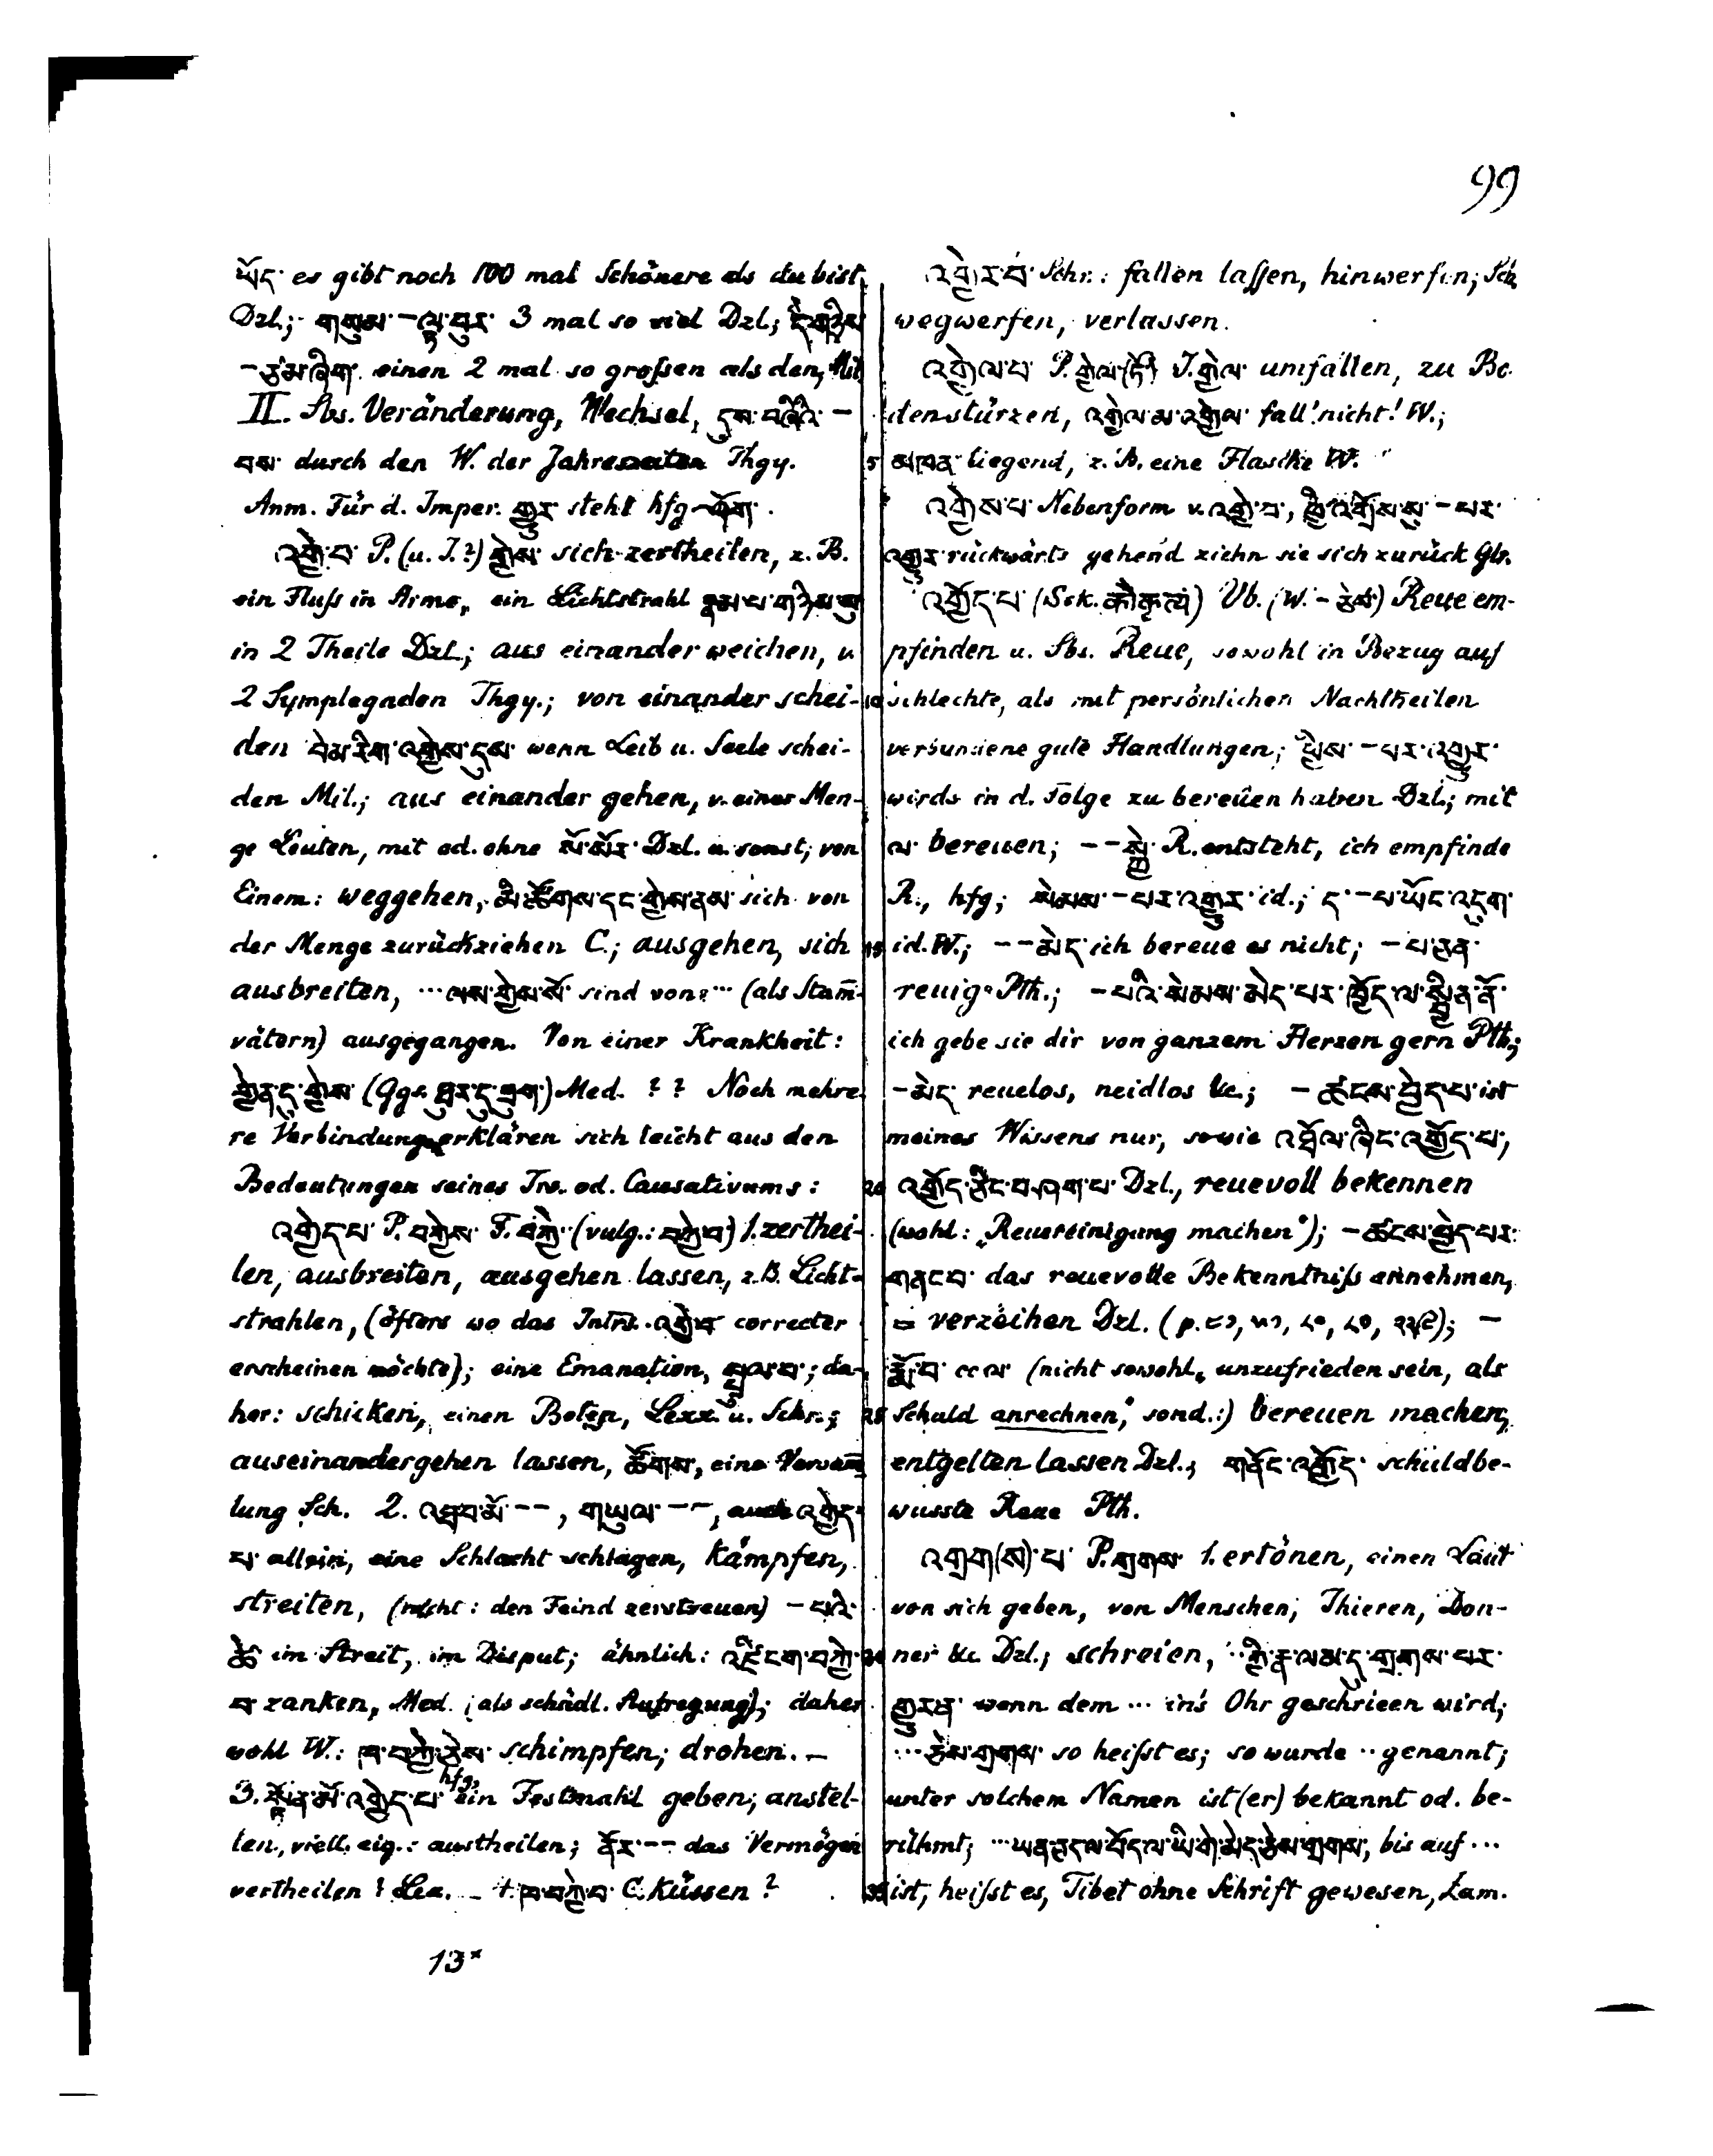 99
ཡོད་ es gibt noch 100 mal Schönere als du bist
Dzl.; གསུམ་ – ལྟ་བུར་ 3 mal so viel Dzl.;
– ཙམ་ཞིག་ einen 2 mal so großen als den, Mil.
II. Sbs. Veränderung, Wechsel, དུས་བཞིའི་ –
བས་ durch den W. der Jahreszeiten Thgy.
Anm. Für d. Imper. གྱུར་ steht hfg ཤོག་.
འགྱེ་བ་ P. (u. I.?) གྱེས་ sich zertheilen, z. B.
ein Fluß in Arme, ein Lichtstrahl རྣམ་པ་གཉིས་སུ་
in 2 Theile Dzl.; aus einander weichen, v.
2 Symplegaden Thgy.; von einander schei-
den བེམ་རིག་འགྱེས་དུས་ wenn Leib u. Seele schei-
den Mil.; aus einander gehen, v. einer Men-
ge Leuten, mit od. ohne སོ་སོར་ Dzl. u. sonst; von
Einem: weggehen, མི་ཚོགས་དང་གྱེས་ནས་ sich von
der Menge zurückziehen C.; ausgehen, sich
ausbreiten, ··· ལས་གྱེས་སོ་ sind von ··· (als Stam̄-
vätern) ausgegangen. Von einer Krankheit:
གྱེན་དུ་གྱེས་ (Ggs. ཐུར་དུ་) Med. ? ? Noch mehre-
re Verbindung. erklären sich leicht aus den
Bedeutungen seines Trs. od. Causativums:
འགྱེད་པ་ P. བཀྱེས་ F. བཀྱེ་ (vulg.: བཀྱེ་བ་) 1. zerthei-
len, ausbreiten, ausgehen lassen, z. B. Licht-
strahlen, (öfters wo das Intrs. འགྱེ་བ་ correcter
erscheinen möchte); eine Emanation, སྤྲུལ་བ་; da-
her: schicken, einen Boten, Lexx. u. Schr.;
auseinandergehen lassen, ཚོགས་, eine Versam̄-
lung Sch. 2. འཐབ་མོ་ – –, གཡུལ་ – –, auch འགྱེད་
པ་ allein, eine Schlacht schlagen, kämpfen,
streiten, (nicht: den Feind zerstreuen) – པའི་
ཚེ་ im Streit, im Disput; ähnlich: འཛིངག་བཀྱེ་
བ་ zanken, Med. (als schädl. Aufregung); daher
wohl W.: ཁ་བཀྱེ་ཅེས་ schimpfen; drohen. –
3. སྟོན་མོ་འགྱེད་པ་ hfg, ein Festmahl geben; anstel-
len, viell. eig.: austheilen; ནོར་ – – das Vermögen
vertheilen? Lex. – +. ཁ་བཀྱེ་བ་ C. küssen?
འགྱེར་བ་ Schr.: fallen lassen, hinwerfen; Sch.
wegwerfen, verlassen.
འགྱེལ་བ་ P. གྱེལ་(ཏོ་) I. གྱེལ་ umfallen, zu Bo-
den stürzen, འགྱེལ་མ་འགྱེལ་ fall' nicht! W.;
མཁན་ liegend, z. B. eine Flasche W.
འགྱེས་པ་ Nebenform v. འགྱེ་བ་, ཕྱི་འགྲོས་སུ་ – པར་
འགྱུར་ rückwärts gehend ziehn sie sich zurück Glr.
འགྱོད་པ་ (Ssk. कौकृत्यं) Vb. (W. – ཅེས་) Reue em-
pfinden u. Sbs. Reue, sowohl in Bezug auf
schlechte, als mit persönlichen Nachtheilen
verbundene gute Handlungen; ཕྱིས་ – པར་འགྱུར་
wirds in d. Folge zu bereuen haben Dzl.; mit
ལ་ bereuen; – – སྐྱེ་ R. entsteht, ich empfinde
R., hfg; སེམས་ – པར་འགྱུར་ id.; ད་ – པ་ཡོང་འདུག་
id. W.; – – མེད་ ich bereue es nicht; – པ་ཅན་
reuig Pth.; – པའི་སེམས་མེད་པར་ཁྱོད་ལ་སྦྱིན་ནོ་
ich gebe sie dir von ganzem Herzen gern Pth.;
– མེད་ reuelos, neidlos &c.; – ཚངས་བྱེད་པ་ ist
meines Wissens nur, sowie འཐོལ་ཞིང་འགྱོད་པ་,
འགྱོད་ཅིང་བཤགས་པ་ Dzl., reuevoll bekennen
(wohl: „Reuereinigung machen"); – ཚངས་བྱེད་པར་
གནང་བ་ das reuevolle Bekenntniß annehmen,
= verzeihen Dzl. –
ccལ་ (nicht sowohl „unzufrieden sein, als
Schuld anrechnen," sond.:) bereuen machen,
entgelten lassen Dzl.; གནོང་འགྱོད་ schuldbe-
wusste Reue Pth.
འགྲག(ས)་པ་ P. གྲགས་ 1. ertönen, einen Laut
von sich geben, von Menschen, Thieren, Don-
ner &c Dzl.; schreien, ··· གྱི་རྣ་ལམ་དུ་གྲགས་པར་
གྱུར་ན་ wenn dem ··· ins Ohr geschrieen wird;
··· ཅེས་གྲགས་ so heißt es; so wurde ·· genannt;
unter solchem Namen ist (er) bekannt od. be-
rühmt; ··· ཡན་ཆད་ལ་བོད་ལ་ཡི་གེ་མེད་ཅེས་གྲགས་, bis auf ···
ist, heißt es, Tibet ohne Schrift gewesen, Zam.
5
10
15
20
25
30
35
13*